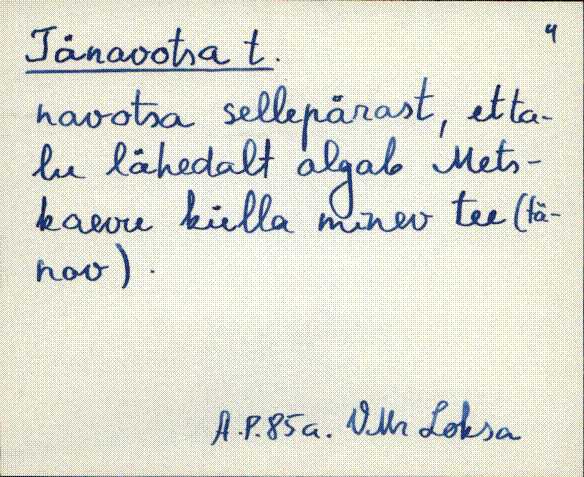 4
Tänavotsa t.
navotsa sellepärast, et ta-
lu lähedalt algab Mets-
kaevu külla minev tee (tä-
nav).
A.P. 85 a. VMr Loksa